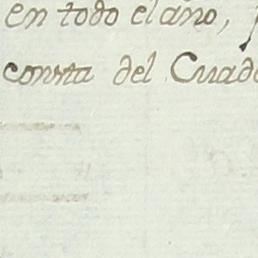 en todo el año,
consta del Cuad